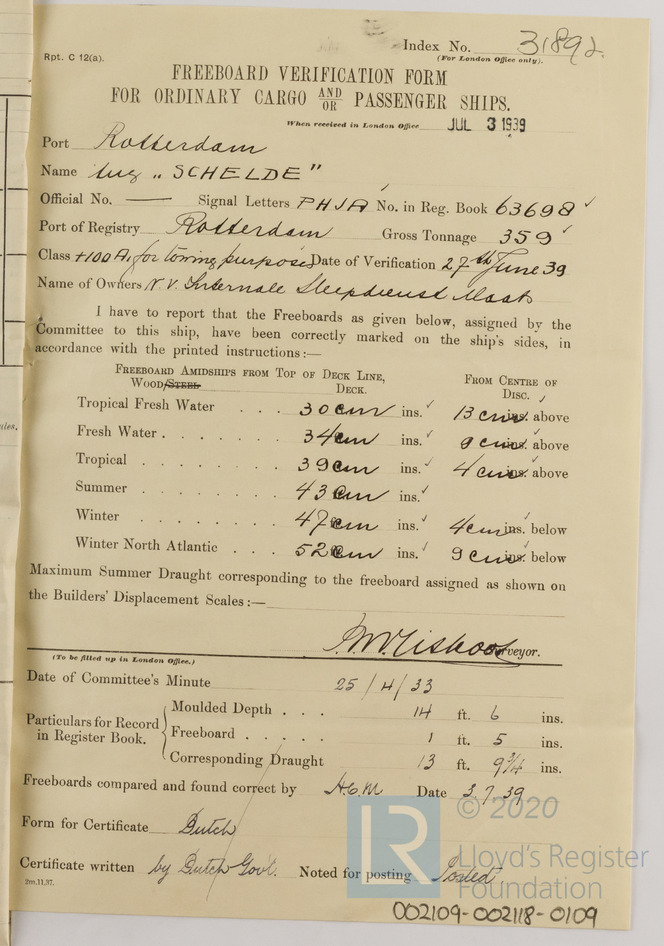 Rpt. C 12(a).
Index No. 31892.
(For London Office only).
FREEBOARD VERIFICATION FORM
FOR ORDINARY CARGO AND/OR PASSENGER SHIPS.
When received in London Office JUL 3 1939
Port Rotterdam
Name tug „SCHELDE"
Official No. — Signal Letters PHJA No. in Reg. Book 63698
Port of Registry Rotterdam Gross Tonnage 359
Class +100A, for towing purposes Date of Verification 27th June 39
Name of Owners N.V. Internatle Sleepdienst Maats
I have to report that the Freeboards as given below, assigned by the
Committee to this ship, have been correctly marked on the ship's sides, in
accordance with the printed instructions:—
FREEBOARD AMIDSHIPS FROM TOP OF DECK LINE, WOOD/STEEL DECK.
FROM CENTRE OF DISC.
Tropical Fresh Water . . . 30 cm ins. 13 cm ins. above
Fresh Water . . . . . . . 34 cm ins. 9 cm ins. above
Tropical . . . . . . . . 39 cm ins. 4 cm ins. above
Summer . . . . . . . . 43 cm ins.
Winter . . . . . . . . 47 cm ins. 4 cm ins. below
Winter North Atlantic . . . 52 cm ins. 9 cm ins. below
Maximum Summer Draught corresponding to the freeboard assigned as shown on
the Builders' Displacement Scales:—
Surveyor.
(To be filled up in London Office.)
Date of Committee's Minute 25/4/33
Particulars for Record in Register Book.
Moulded Depth . . . 14 ft. 6 ins.
Freeboard . . . . . 1 ft. 5 ins.
Corresponding Draught 13 ft. 9¾ ins.
Freeboards compared and found correct by H.C.M Date 3.7.39
Form for Certificate Dutch
Certificate written by Dutch Govt. Noted for posting Posted
2m,11,37.
© 2020
LR
Lloyd's Register
Foundation
002109-002118-0109